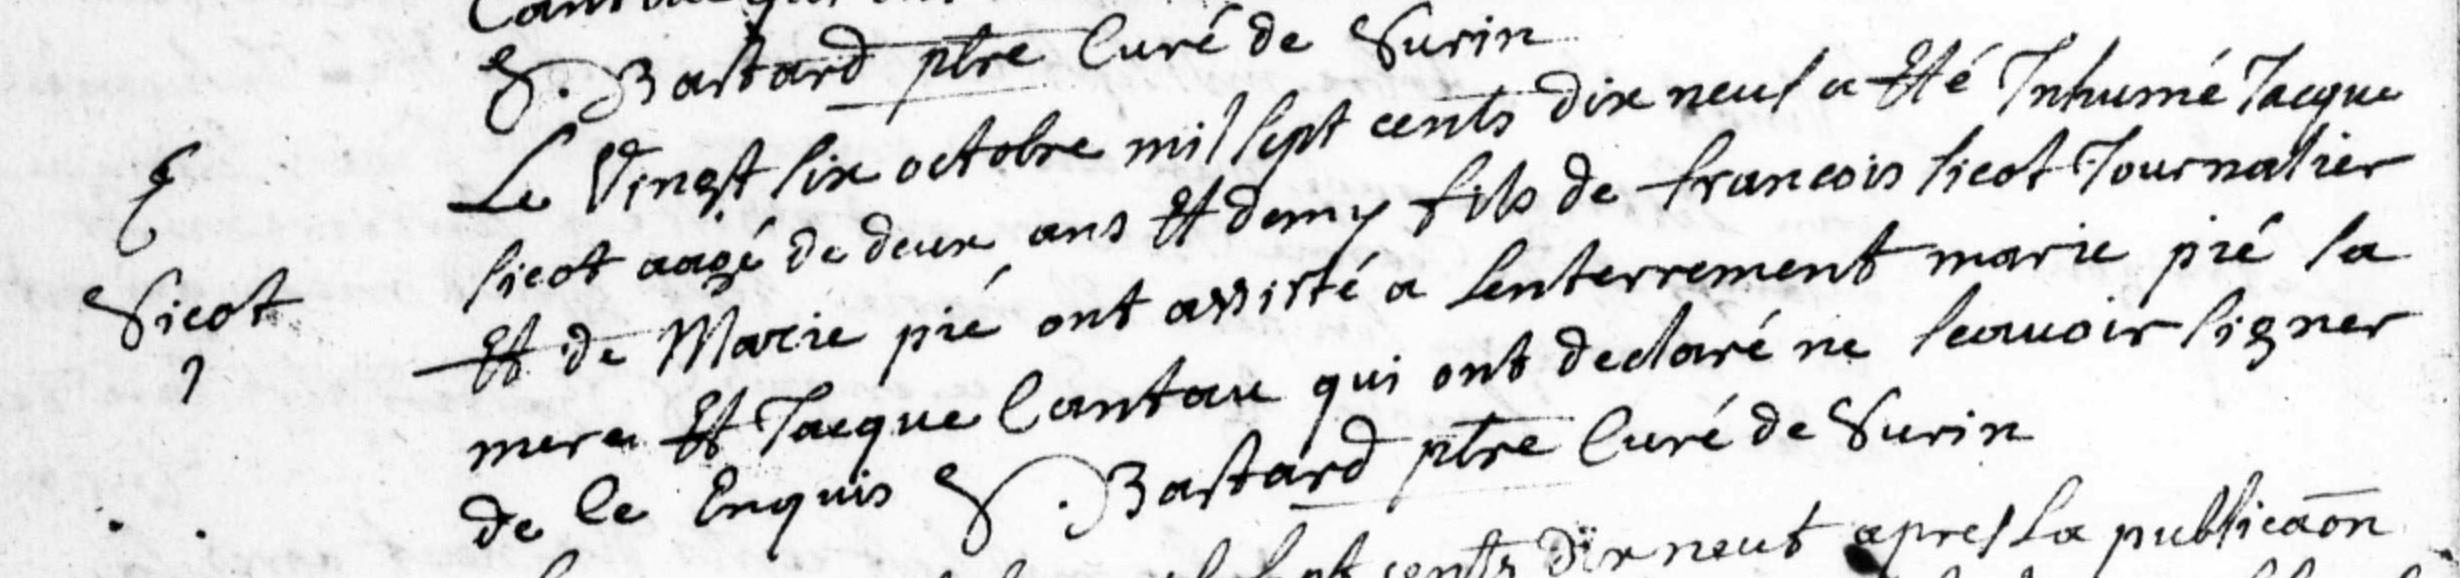 S. Bastard ptre Curé de Surin
Le Vingt six octobre mil sept cents dix neuf a Eté Inhumé Jacque
sicot aagé de deux ans Et demy fils de francois sicot Journalier
Et de Marie pié ont assisté a lenterrement marie pié la
mere Et Jacque Cantau qui ont declaré ne scauoir signer
de ce Enquis S. Bastard ptre Curé de Surin
sept cents dix neuf apres La publicaon
Sicot